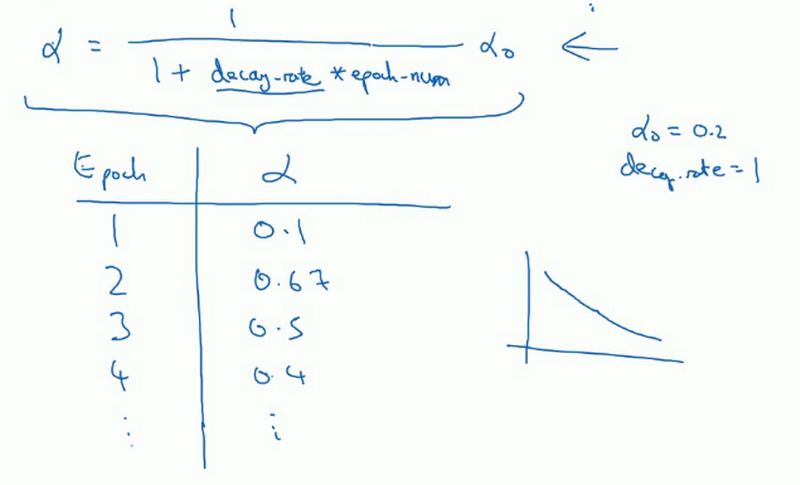 α = 1 / (1 + decay-rate * epoch-num) α₀
α₀ = 0.2
decay-rate = 1
Epoch α
1 0.1
2 0.67
3 0.5
4 0.4
⋮ ⋮